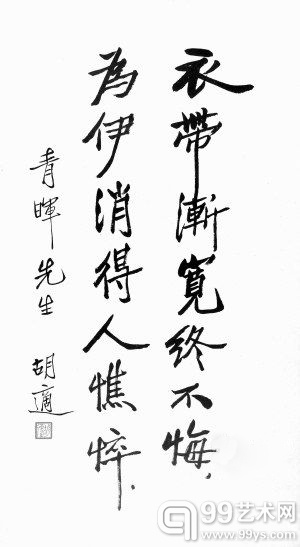 衣帶漸寬終不悔.
為伊消得人憔悴.
青暉先生 胡適
99艺术网
www.99ys.com